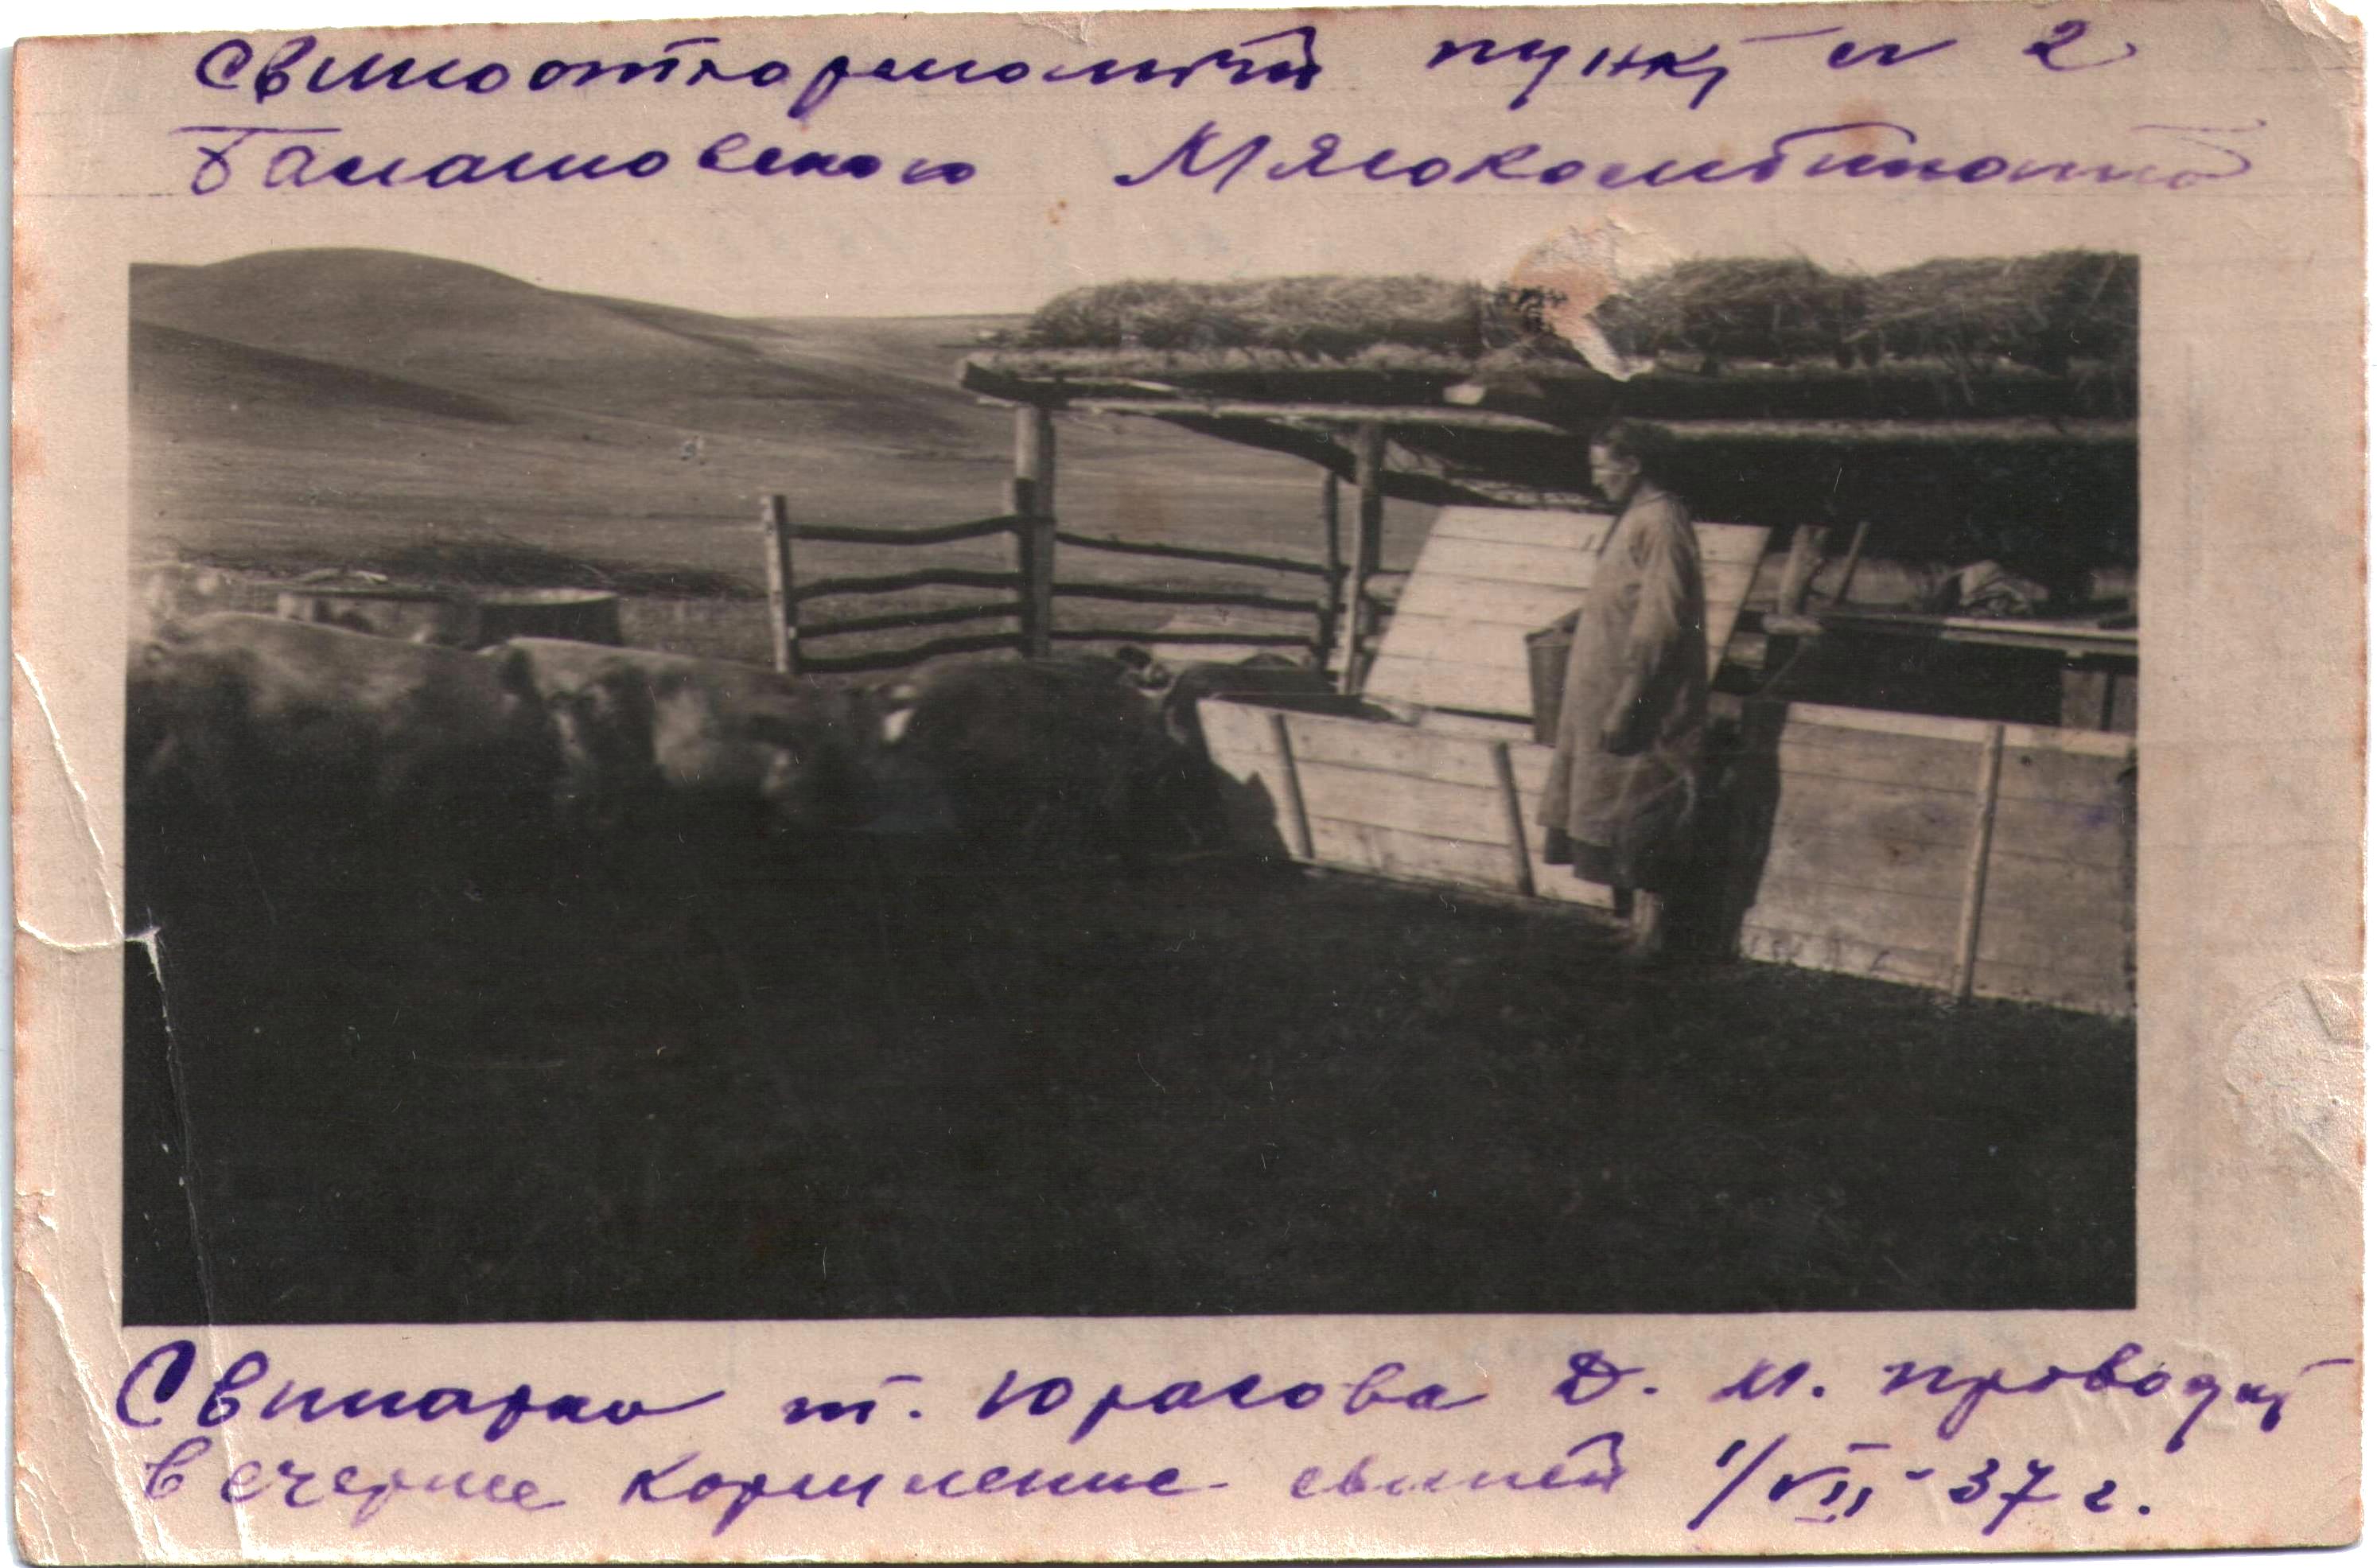 Свинооткормочный пункт № 2
Балашовского Мясокомбината
Свинарка т. Юрасова Д. М. проводит
вечернее кормление свиней 1/VII-37 г.